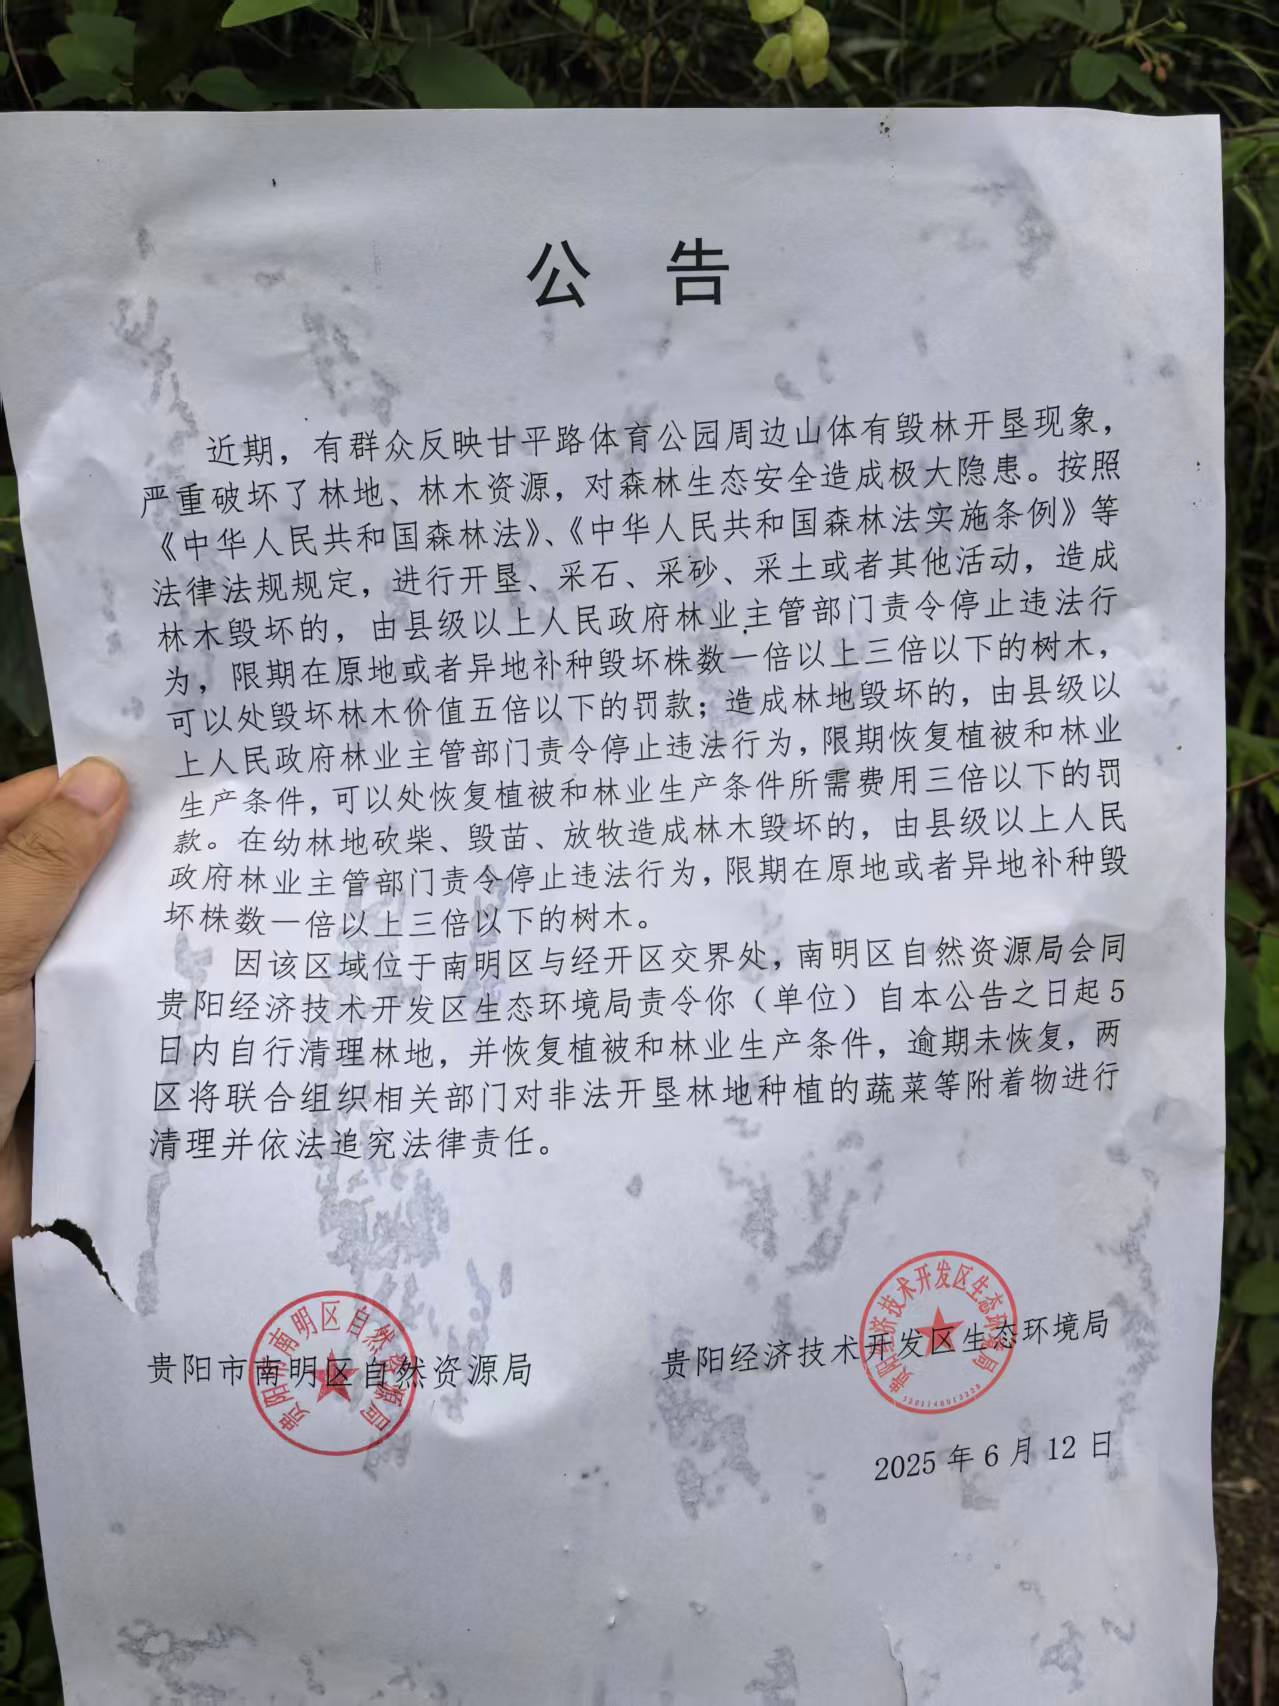 公 告
近期，有群众反映甘平路体育公园周边山体有毁林开垦现象，
严重破坏了林地、林木资源，对森林生态安全造成极大隐患。按照
《中华人民共和国森林法》、《中华人民共和国森林法实施条例》等
法律法规规定，进行开垦、采石、采砂、采土或者其他活动，造成
林木毁坏的，由县级以上人民政府林业主管部门责令停止违法行
为，限期在原地或者异地补种毁坏株数一倍以上三倍以下的树木，
可以处毁坏林木价值五倍以下的罚款；造成林地毁坏的，由县级以
上人民政府林业主管部门责令停止违法行为，限期恢复植被和林业
生产条件，可以处恢复植被和林业生产条件所需费用三倍以下的罚
款。在幼林地砍柴、毁苗、放牧造成林木毁坏的，由县级以上人民
政府林业主管部门责令停止违法行为，限期在原地或者异地补种毁
坏株数一倍以上三倍以下的树木。
因该区域位于南明区与经开区交界处，南明区自然资源局会同
贵阳经济技术开发区生态环境局责令你（单位）自本公告之日起5
日内自行清理林地，并恢复植被和林业生产条件，逾期未恢复，两
区将联合组织相关部门对非法开垦林地种植的蔬菜等附着物进行
清理并依法追究法律责任。
贵阳市南明区自然资源局
贵阳市南明区自然资源局
贵阳经济技术开发区生态环境局
贵阳经济技术开发区生态环境局
2025年6月12日